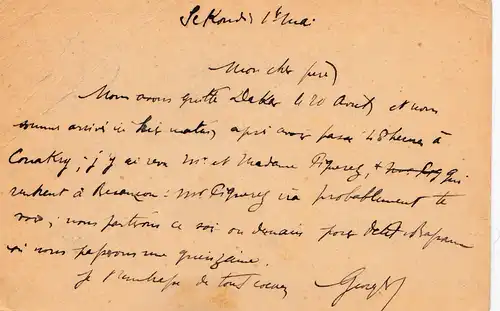 Sekondi 1er Mai
Mon cher père,
Nous avons quitté Dakar le 20 Août, et nous
sommes arrivés ici hier matin, après avoir passé 48 heures à
Conakry ; j'y ai vu Mr et Madame Piquerez, qui
rentrent à Besançon : Mr Piquerez ira probablement te
voir ; nous partirons ce soir ou demain pour
où nous passerons une quinzaine.
Je t'embrasse de tout coeur
Georges